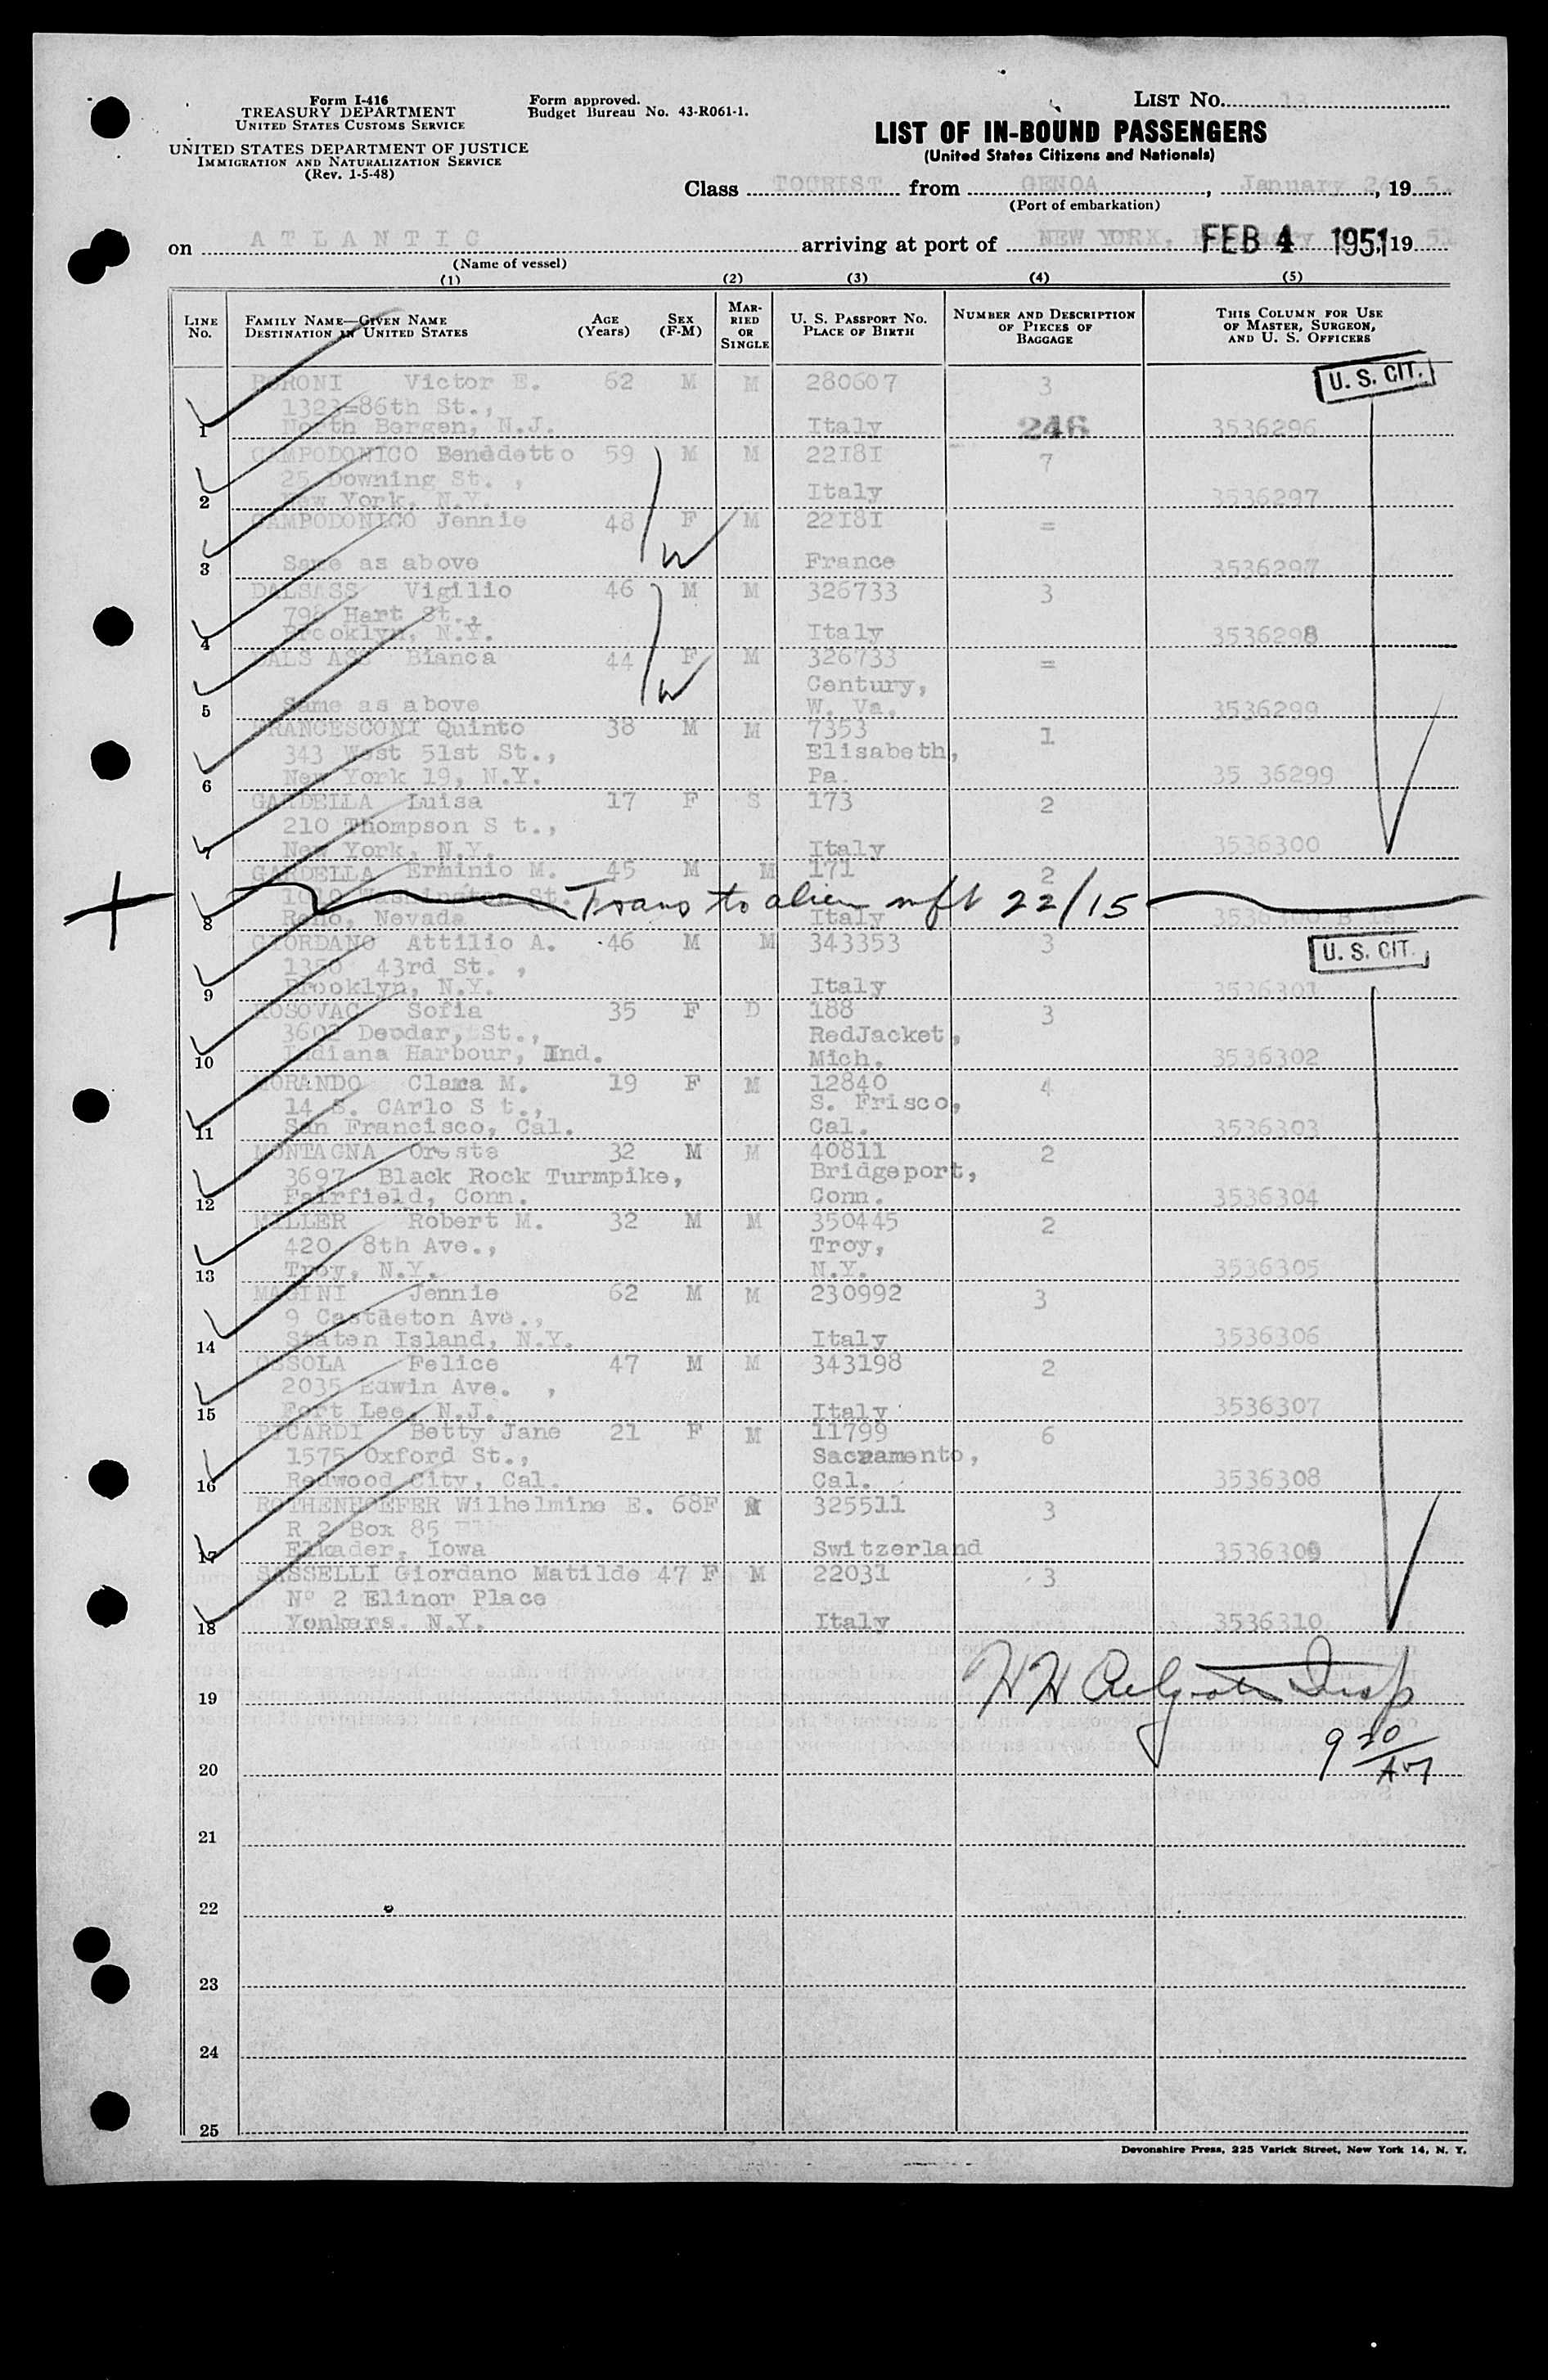 Form I-416
TREASURY DEPARTMENT
UNITED STATES CUSTOMS SERVICE
UNITED STATES DEPARTMENT OF JUSTICE
IMMIGRATION AND NATURALIZATION SERVICE
(Rev. 1-5-48)
Form approved.
Budget Bureau No. 43-R061-1.
LIST No. 13
LIST OF IN-BOUND PASSENGERS
(United States Citizens and Nationals)
Class TOURIST from GENOA, January 19
(Port of embarkation)
on ATLANTIC arriving at port of NEW YORK, FEB 4 1951 19 51
(Name of vessel)
(1) (2) (3) (4) (5)
LINE No. FAMILY NAME—GIVEN NAME DESTINATION IN UNITED STATES AGE (Years) SEX (F-M) MARRIED OR SINGLE U. S. PASSPORT NO. PLACE OF BIRTH NUMBER AND DESCRIPTION OF PIECES OF BAGGAGE THIS COLUMN FOR USE OF MASTER, SURGEON, AND U. S. OFFICERS
U. S. CIT.
Victor E. 62 M M 280607 3
1323=86th St.,
1 North Bergen, N.J. Italy 246 3536296
CAMPODONICO Benedetto 59 M M 22181 7
25 Downing St. ,
2 New York, N.Y. Italy 3536297
CAMPODONICO Jennie 48 F M 22181 =
3 Same as above W France 3536297
DALSASS Vigilio 46 M M 326733 3
798 Hart St.,
4 Brooklyn, N.Y. Italy 3536298
DALS ASS Bianca 44 F M 326733 =
W Century,
5 Same as above W. Va. 3536299
FRANCESCONI Quinto 38 M M 7353 1
343 West 51st St., Elisabeth,
6 New York 19, N.Y. Pa. 35 36299
GARDELLA Luisa 17 F S 173 2
210 Thompson S t.,
7 New York, N.Y. Italy 3536300
GARDELLA Erminio M. 45 M M 171 2
Washington St. Trans to alien mft 22/15
8 Reno, Nevada Italy
GIORDANO Attilio A. 46 M M 343353 3 U. S. CIT.
1358 43rd St. ,
9 Brooklyn, N.Y. Italy 3536301
KOSOVAC Sofia 35 F D 188 3
3602 Deodar, St., RedJacket,
10 Indiana Harbour, Ind. Mich. 3536302
MORANDO Clara M. 19 F M 12840 4
14 S. CArlo S t., S. Frisco,
11 San Francisco, Cal. Cal. 3536303
MONTAGNA Oreste 32 M M 40811 2
3697 Black Rock Turmpike, Bridgeport,
12 Fairfield, Conn. Conn. 3536304
MILLER Robert M. 32 M M 350445 2
420 8th Ave., Troy,
13 Troy, N.Y. N.Y. 3536305
MAGINI Jennie 62 M M 230992 3
9 Castleton Ave.,
14 Staten Island, N.Y. Italy 3536306
OSSOLA Felice 47 M M 343198 2
2035 Edwin Ave. ,
15 Fort Lee, N.J. Italy 3536307
PICARDI Betty Jane 21 F M 11799 6
1575 Oxford St., Sacramento,
16 Redwood City, Cal. Cal. 3536308
ROTHENHOEFER Wilhelmine E. 68F M 325511 3
R 2 Box 85
17 Elkader, Iowa Switzerland 3536309
SASSELLI Giordano Matilde 47 F M 22031 3
Nº 2 Elinor Place
18 Yonkers, N.Y. Italy 3536310
19 H H Insp
9 30/AM
20
21
22
23
24
25
Devonshire Press, 225 Varick Street, New York 14, N. Y.